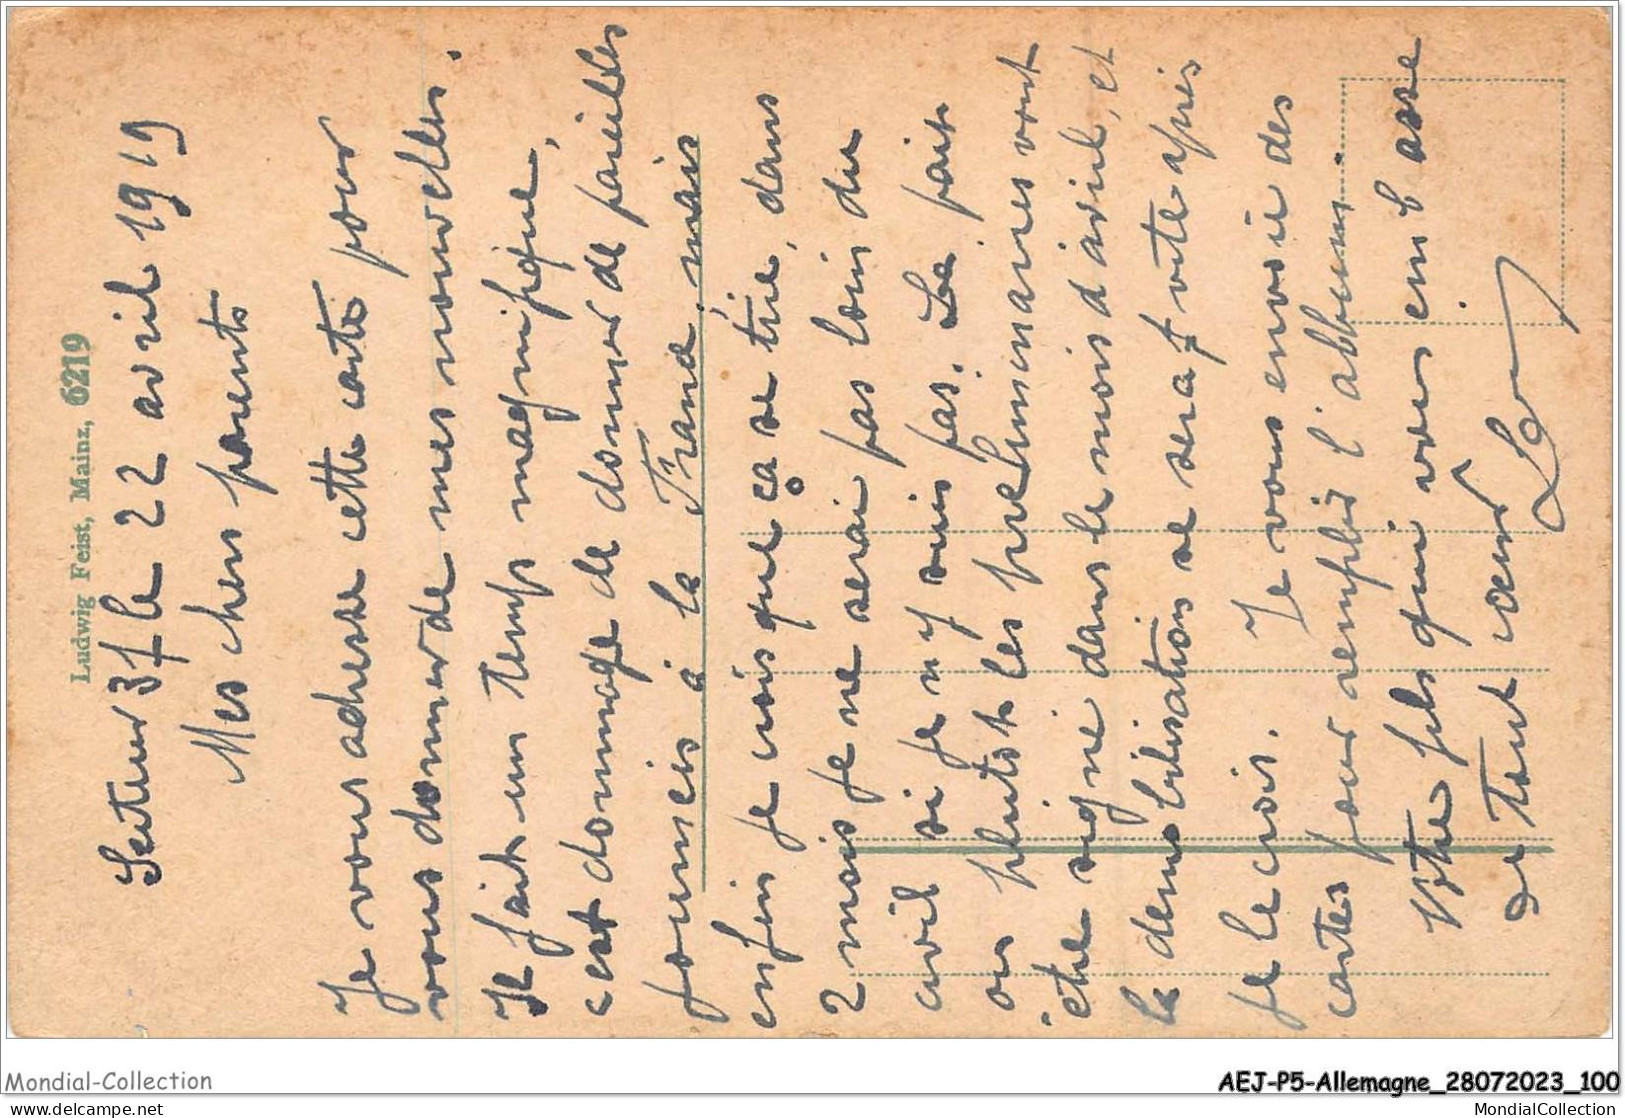 Ludwig Feist, Mainz, 6219
Secteur 3f le 22 avril 1919
Mes chers parents
Je vous adresse cette carte pour
vous donner de mes nouvelles.
Il fait un temps magnifique,
c'est dommage de donner de pareilles
journées à la France, mais
enfin je crois que ça se tire, dans
2 mois je ne serai pas loin du
civil si je n'y suis pas. La paix
ou plutôt les preliminaires vont
être signé dans le mois d'avril, et
la demobilisation se sera f vite après
je le crois. Je vous envoie des
cartes pour remplir l'albbum.
Votre fils qui vous embrasse
de tout cœur
Mondial-Collection
AEJ-P5-Allemagne_28072023_100
delcampe.net
MondialCollection